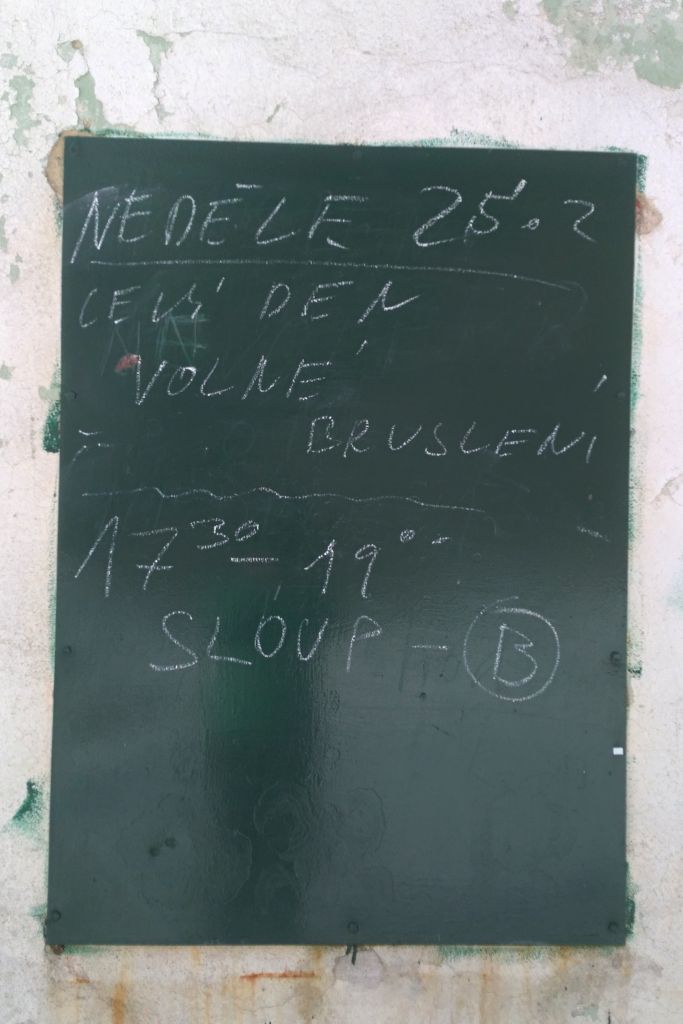 NEDĚLE 25.2
CELÝ DEN
VOLNÉ
BRUSLENÍ
17³⁰ – 19⁰⁰
SLOUP – B